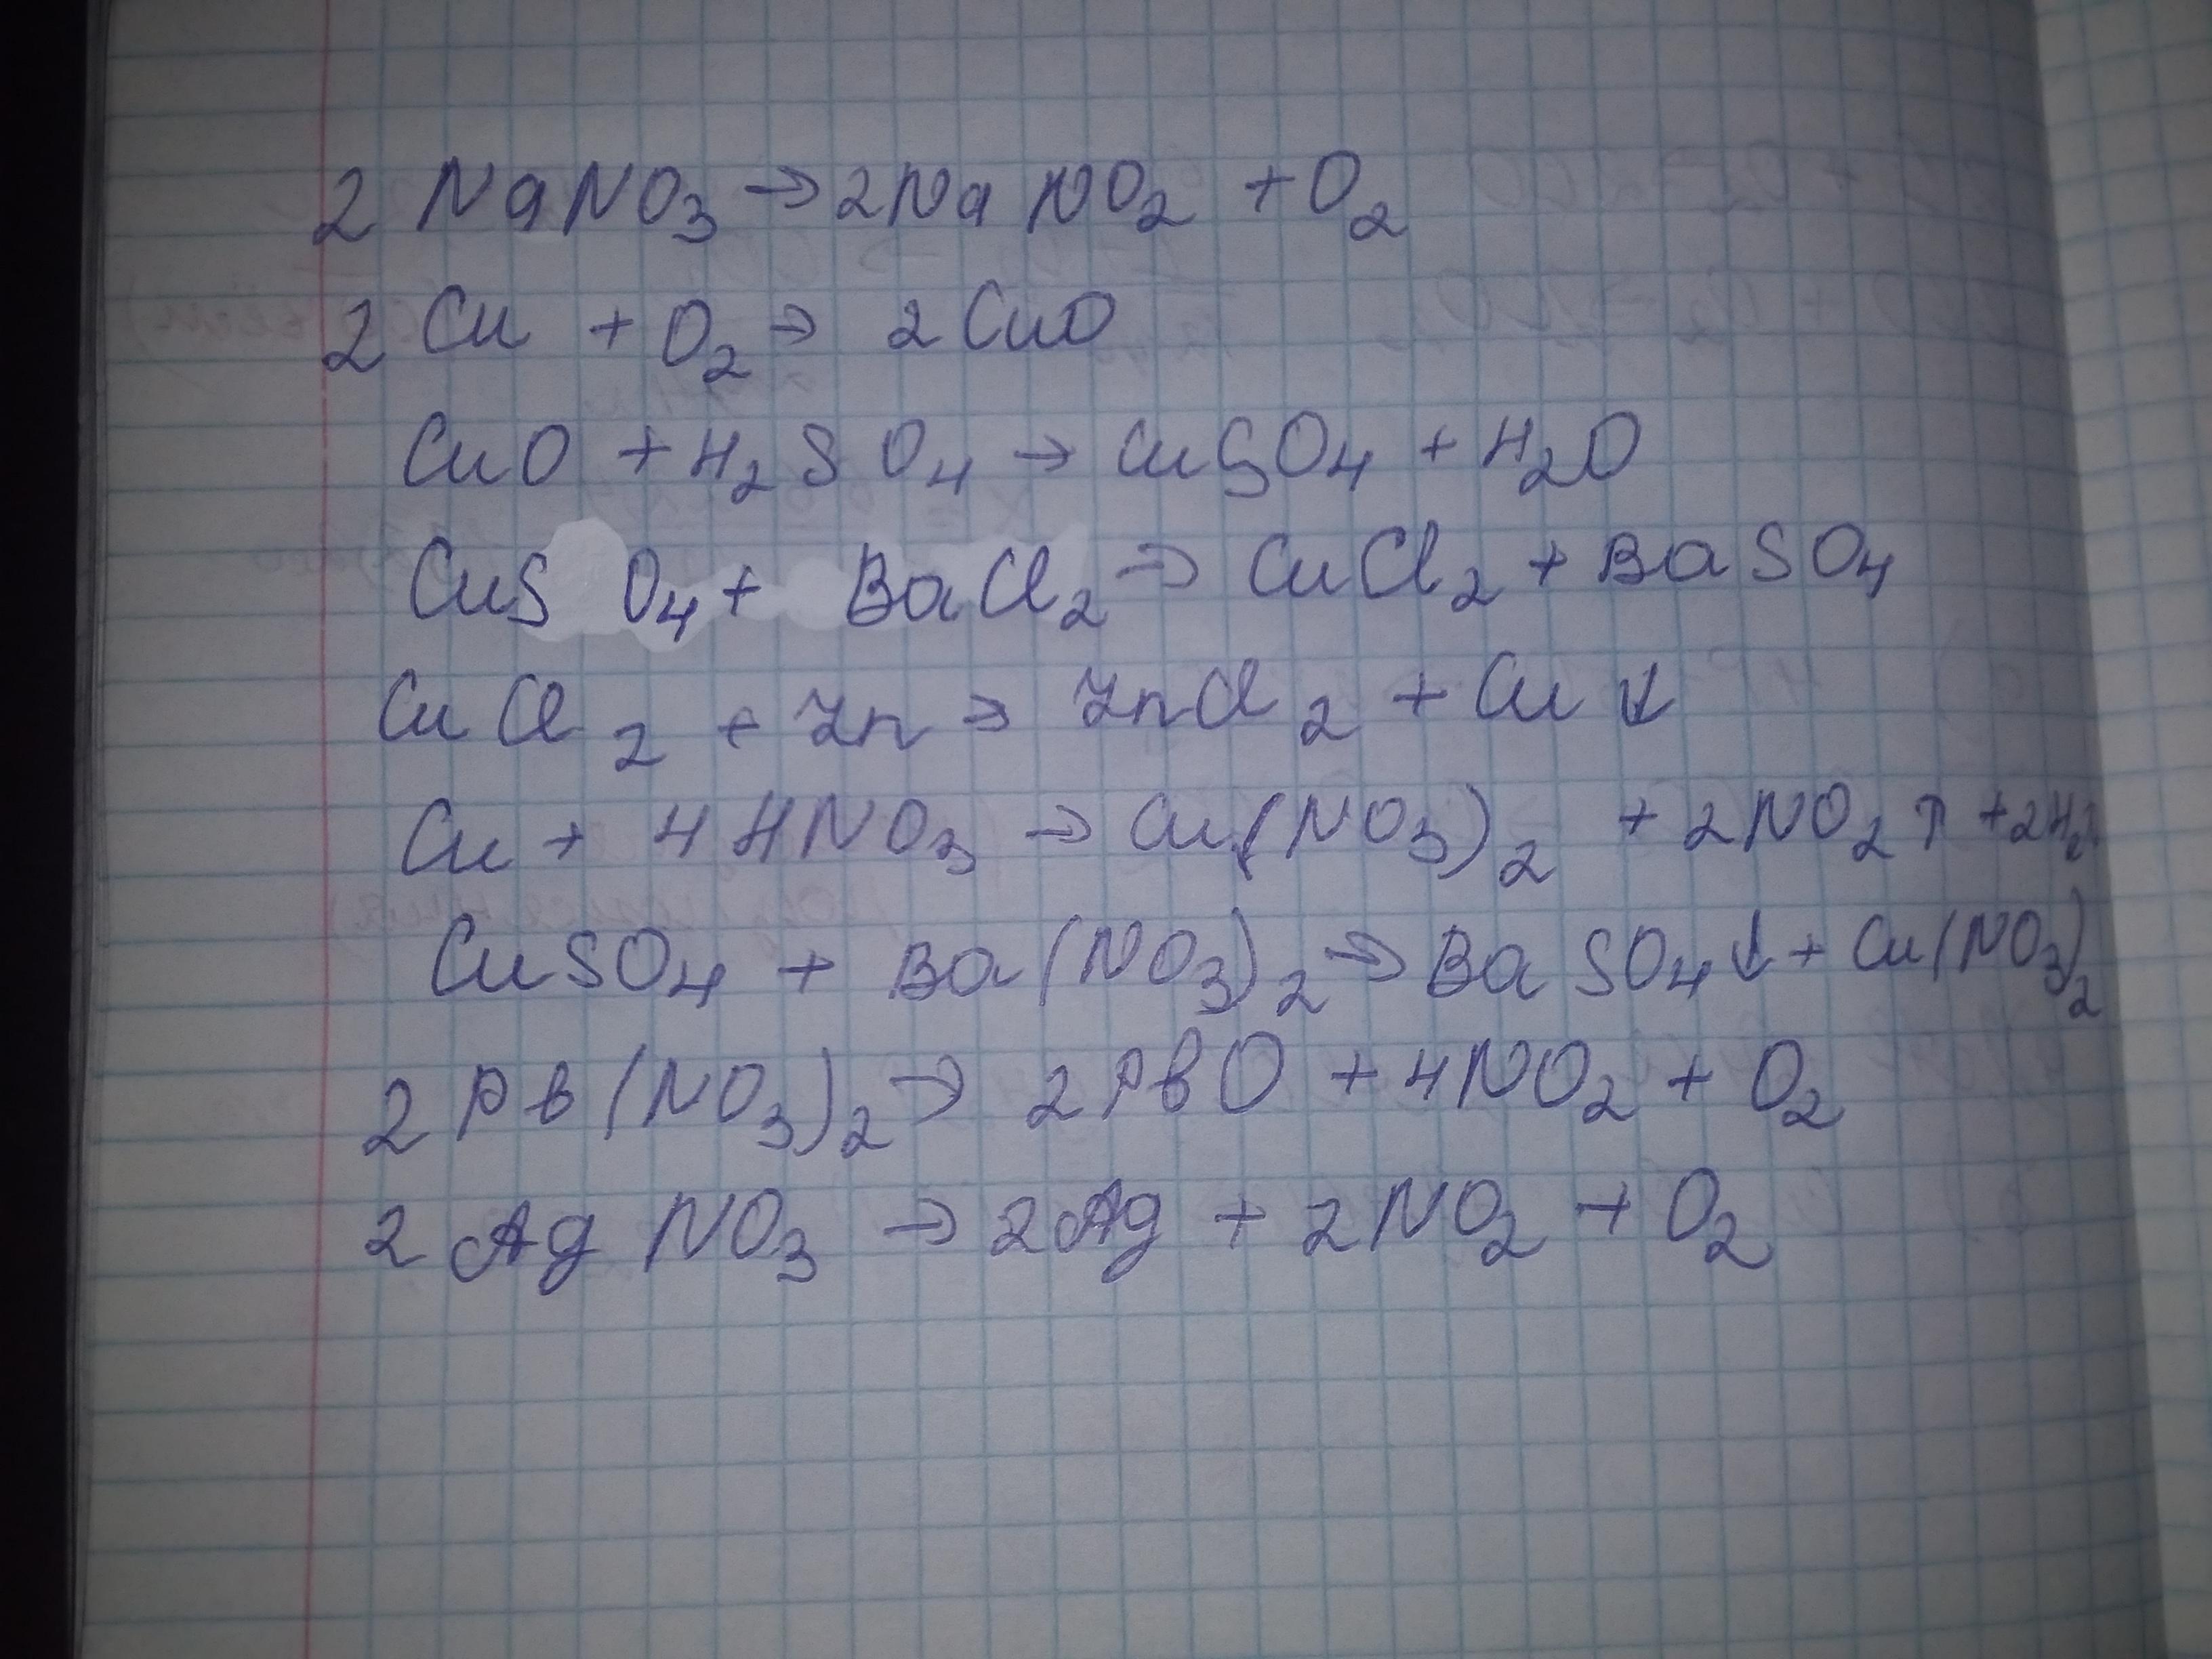 2 NaNO₃ → 2Na NO₂ + O₂
2 Cu + O₂ → 2 CuO
CuO + H₂SO₄ → CuSO₄ + H₂O
CuSO₄ + BaCl₂ → CuCl₂ + BaSO₄
CuCl₂ + Zn → ZnCl₂ + Cu ↓
Cu + 4HNO₃ → Cu(NO₃)₂ + 2NO₂ ↑ + 2H₂
CuSO₄ + Ba(NO₃)₂ → BaSO₄ ↓ + Cu(NO₃)₂
2 Pb(NO₃)₂ → 2PbO + 4NO₂ + O₂
2 AgNO₃ → 2Ag + 2NO₂ + O₂